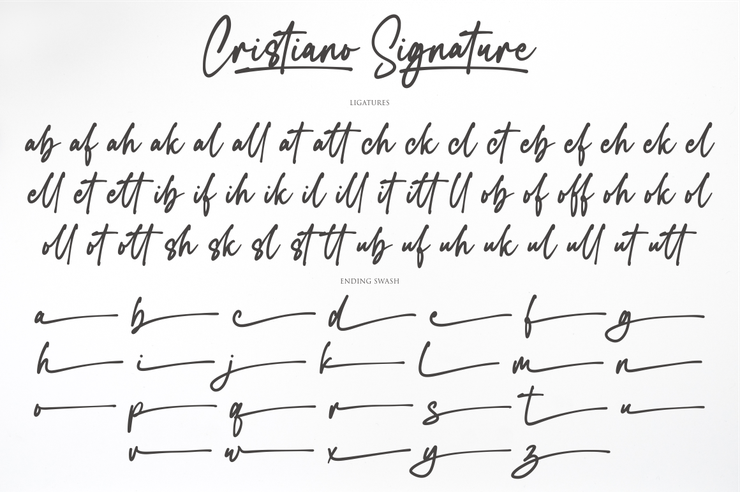 Cristiano Signature
LIGATURES
ab af ah ak al all at att ch ck cl ct eb ef eh ek el
ell et ett ib if ih ik il ill it itt ll ob of off oh ok ol
oll ot ott sh sk sl st tt ub uf uh uk ul ull ut utt
ENDING SWASH
a b c d e f g
h i j k l m n
o p q r s t u
v w x y z